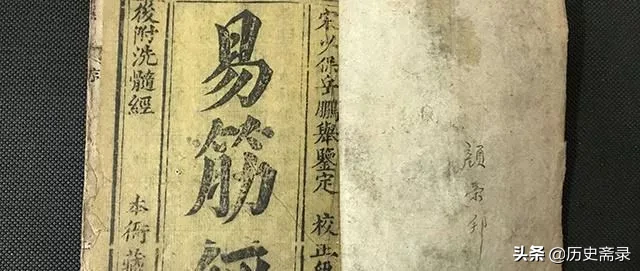 宋少保岳鵬舉鑒定 校正
易筋經
後附洗髓經 本衙藏
顧榮邦
头条 @历史斋录